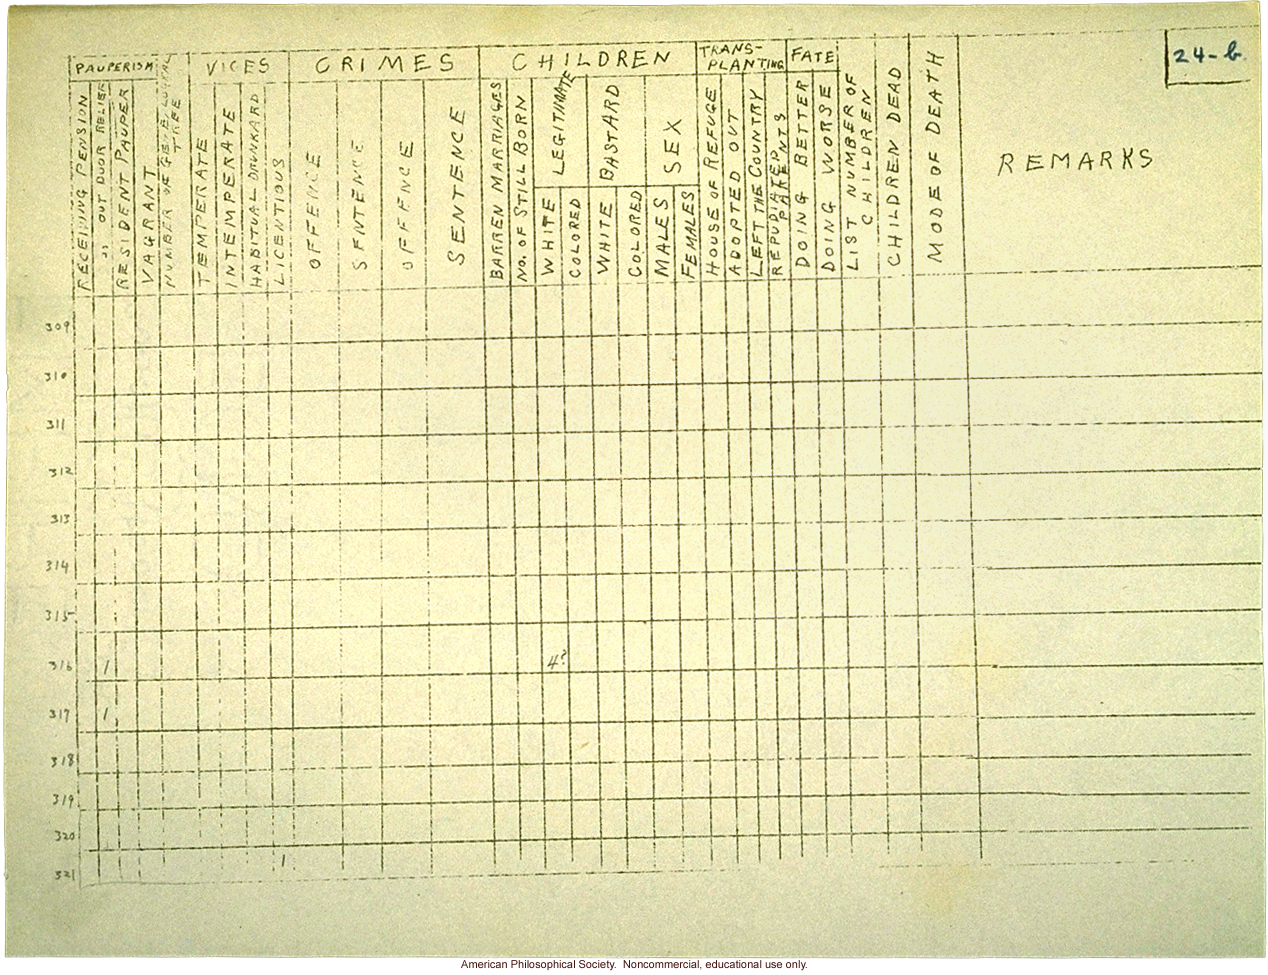 24-b.
PAUPERISM VICES CRIMES CHILDREN TRANS-PLANTING FATE
RECEIVING PENSION
" OUT DOOR RELIEF
RESIDENT PAUPER
VAGRANT
NUMBER OF TREE
TEMPERATE
INTEMPERATE
HABITUAL DRUNKARD
LICENTIOUS
OFFENCE
SENTENCE
OFFENCE
SENTENCE
BARREN MARRIAGES
NO. OF STILL BORN
LEGITIMATE
WHITE
COLORED
BASTARD
WHITE
COLORED
SEX
MALES
FEMALES
HOUSE OF REFUGE
ADOPTED OUT
LEFT THE COUNTRY
REPUDIATED PARENTS
DOING BETTER
DOING WORSE
LIST NUMBER OF CHILDREN
CHILDREN DEAD
MODE OF DEATH
REMARKS
309
310
311
312
313
314
315
316 1 4?
317 1
318
319
320
321 1
American Philosophical Society. Noncommercial, educational use only.